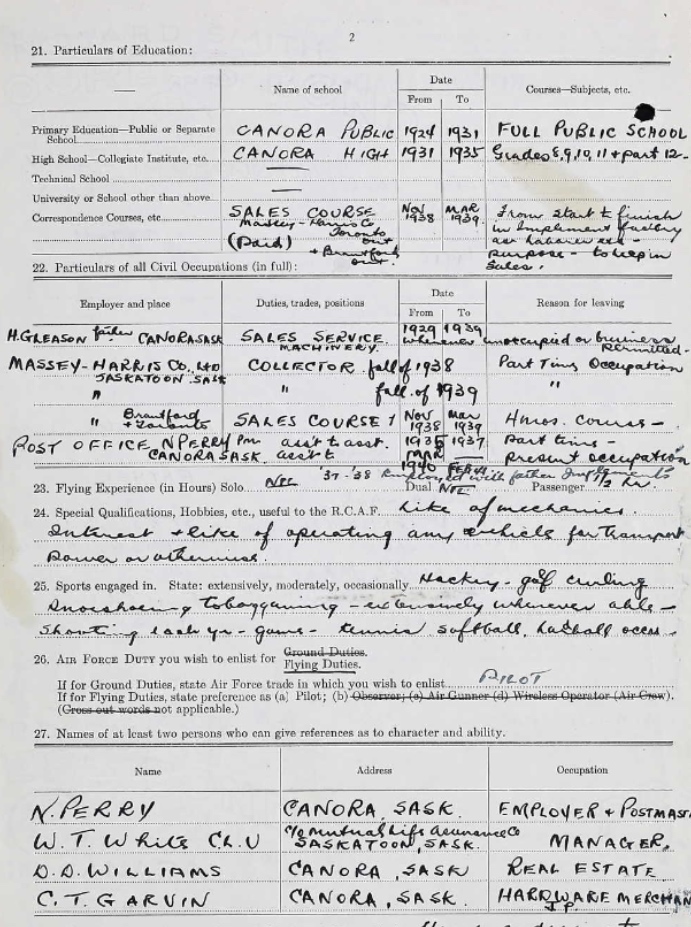 2
21. Particulars of Education:
Name of school
Date
From To
Courses—Subjects, etc.
Primary Education—Public or Separate School CANORA PUBLIC 1924 1931 FULL PUBLIC SCHOOL
High School—Collegiate Institute, etc. CANORA HIGH 1931 1935 Grades 8, 9, 10, 11 + part 12-
Technical School
University or School other than above
Correspondence Courses, etc. SALES COURSE NOV 1938 MAR 1939. From start to finish
Massey-Harris Co., in Implement factory
Toronto Ont
(Paid) + Brantford Ont. purpose - to help in
Sales.
22. Particulars of all Civil Occupations (in full):
Employer and place Duties, trades, positions Date Reason for leaving
From To
H. GLEASON father CANORA SASK SALES SERVICE MACHINERY. 1929 1939 whenever unoccupied or business permitted-
MASSEY-HARRIS CO., LTD COLLECTOR fall of 1938 Part Time Occupation
SASKATOON SASK
" " fall of 1939 "
" Brantford + Toronto SALES COURSE Nov 1938 Mar 1939 4 mos. course -
POST OFFICE, N PERRY Pm ass't & asst. 1935 1937 part time -
CANORA SASK. ass't MAR 1940 present occupation
'37-'38 Employed with father Implements
23. Flying Experience (in Hours) Solo NIL Dual NIL Passenger 1/2 hr.
24. Special Qualifications, Hobbies, etc., useful to the R.C.A.F. Like of mechanics.
Interest + like of operating any vehicle for transport
power or otherwise.
25. Sports engaged in. State: extensively, moderately, occasionally. Hockey - golf curling
Snoeshoeing tobogganing - extensively whenever able -
Shooting each yr - game - tennis softball,
26. AIR FORCE DUTY you wish to enlist for Ground Duties.
Flying Duties.
If for Ground Duties, state Air Force trade in which you wish to enlist PILOT
If for Flying Duties, state preference as (a) Pilot; (b) Observer; (c) Air Gunner (d) Wireless Operator (Air Crew).
(Cross out words not applicable.)
27. Names of at least two persons who can give references as to character and ability.
Name Address Occupation
N. PERRY CANORA, SASK. EMPLOYER + POSTMAST
W. T. White CL.U c/o Mutual Life Assurance Co SASKATOON, SASK. MANAGER,
D. D. WILLIAMS CANORA, SASK REAL ESTATE
C. T. GARVIN CANORA, SASK. HARDWARE MERCHAN
J.P.